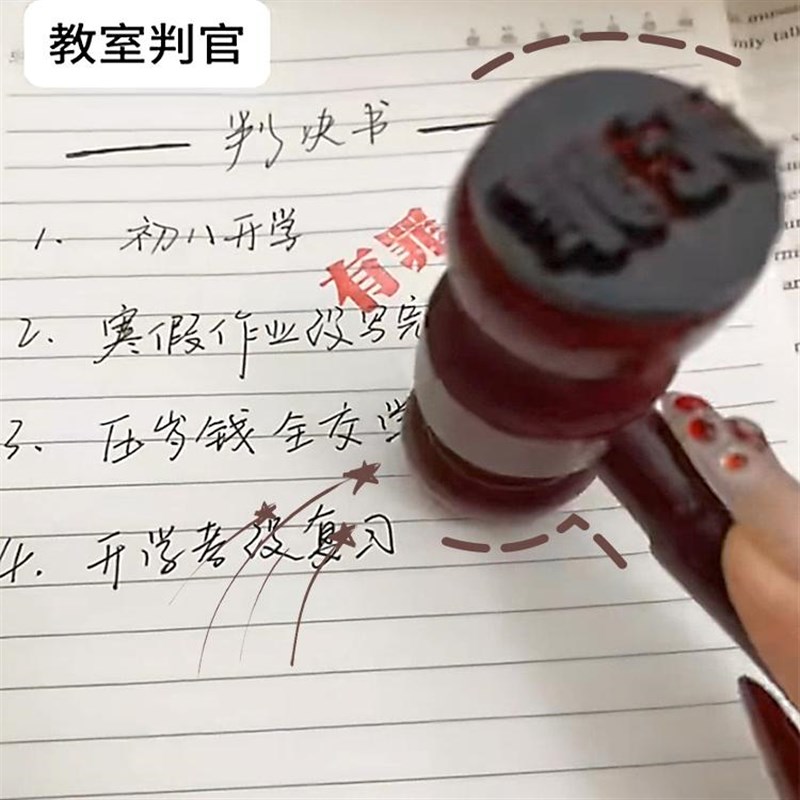 教室判官
判决书
1. 初八开学
有罪
2. 寒假作业没写完
3. 压岁钱全交学
4. 开学考没复习